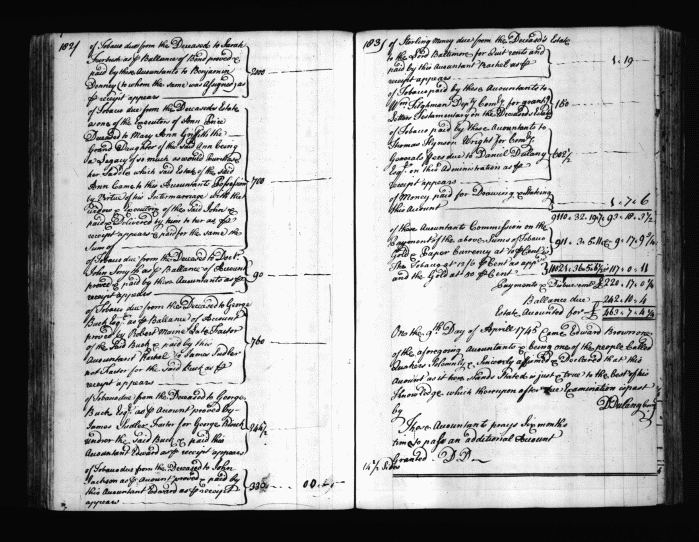 182/
of Tobacco due from the Deceased to Sarah
as pr Ballance of Bond proved &
paid by these Accountants to Benjamin
Denney (to whom the same was assigned) as
pr receipt appears
of Tobacco due from the Deceased's Estate
as one of the Executors of Ann Price
Deceased to Mary Ann Griffith the
Grand Daughter of the said Ann being
a Legacy of so much as would purchase
her Saddle, which said Estate of the said
Ann Came to this Accountants Possession
by Virtue of his Intermarriage with the
Widow & Executrix of the said John &
paid & Delivered by him to her as pr
receipt appears & paid for the same the
Sum of
700
of Tobacco due from the Deceased to Doctr
John Smyth as pr Ballance of Account
proved & paid by these Accountants as
receipt appears
90
of Tobacco due from the Deceased to George
Buck Esqr as pr Ballance of Account
proved by Robert Maine late Factor
of the said Buck & paid by this
Accountant Rachel to James Tudler
Factor for the said Buck as pr
receipt appears
760
of Tobacco due from the Deceased to George
Buck Esqr as pr Account proved by
James Tudler Factor for George Buck
the said Buck & paid this
Accountant Edward as pr receipt appears
of Tobacco due from the Deceased to John
Jackson as pr Account proved & paid by
this Accountant Edward as pr receipt
appears
183/
of Sterling Money due from the Deceased's Estate
to the Lord Baltimore for Quit rents and
paid by this Accountant Rachel as pr
receipt appears
1 . 19
of Tobacco paid by these Accountants to
Wm Tilghman Depty Comry for granting
Letters Testamentary on the Deceased's Estate
150
of Tobacco paid by these Accountants to
Thomas Hynson Wright for Comry
Generals fees due to Daniel Dulany
Esqr on this Administration as pr
receipt appears
of Money paid for Drawing & Stating
this Account
1 . 7 . 6
of these Accountants Commission on the
Payments of the above Sums of Tobacco
Gold & Paper Currency at 10 pr Cent
The Tobacco at 12/6 pr Cent as appd
and the Gold at 50 pr Cent
Payments &
Ballance due 242.10.4
Estate Accounted for £ 463.7.4¼
On the 9th Day of Aprill 1745 Came Edward Browne one
of the aforegoing Accountants & being one of the people called
Quakers Solemnly & Sincerely affirmed & Declared that this
Account as it here stands Stated is just & true to the best of his
Knowledge, which thereupon after due Examination is past
by
D Dulany
These Accountants prays Six months
time to pass an additional Account
Granted D. D.